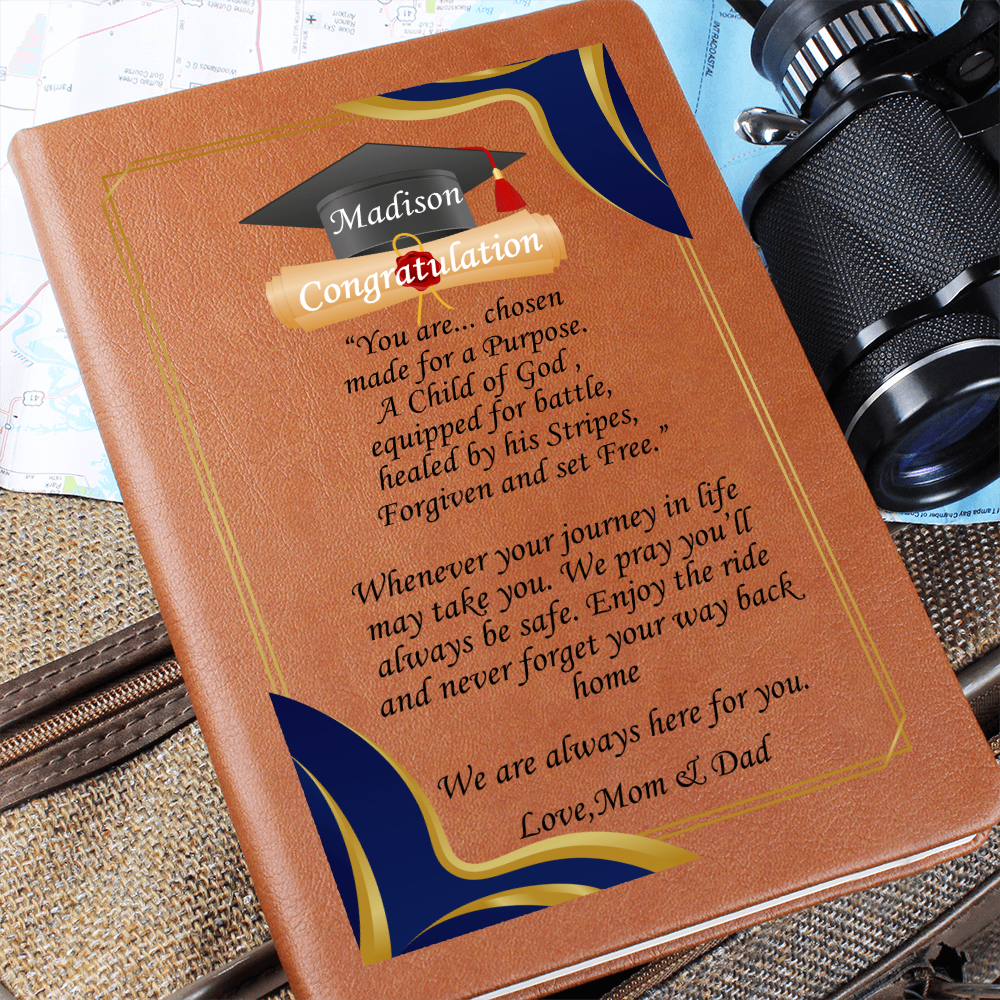 Madison
Congratulation
“You are... chosen
made for a Purpose.
A Child of God ,
equipped for battle,
healed by his Stripes,
Forgiven and set Free.”
Whenever your journey in life
may take you. We pray you’ll
always be safe. Enjoy the ride
and never forget your way back
home
We are always here for you.
Love,Mom & Dad
Parrish
Buffalo Creek
Golf Course
Woodlands G C
Airport
Dixie Sky
Ranch
41
41
INTRACOASTAL
Park